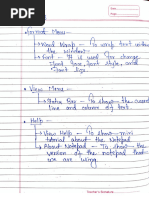 Format Menu -
Word Wrap - To wrap text within
the window.
Font - It is used for change
Font Size, Font Style, and
Font Size.
View Menu -
Status Bar - To show the current
line and column of text.
Help -
View Help - To show mini
tutorial about the Notepad
About Notepad - To show the
version of the notepad that
we are using
Teacher's Signature